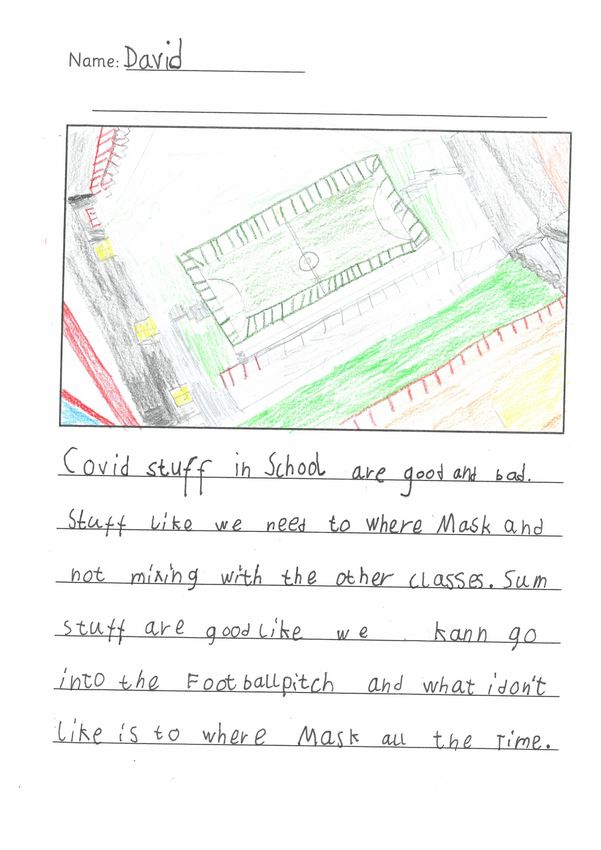 Name: David
Covid stuff in School are good and bad.
Stuff like we need to where Mask and
not mixing with the other classes. Sum
stuff are good like we kann go
into the Football pitch and what i don't
like is to where Mask all the Time.